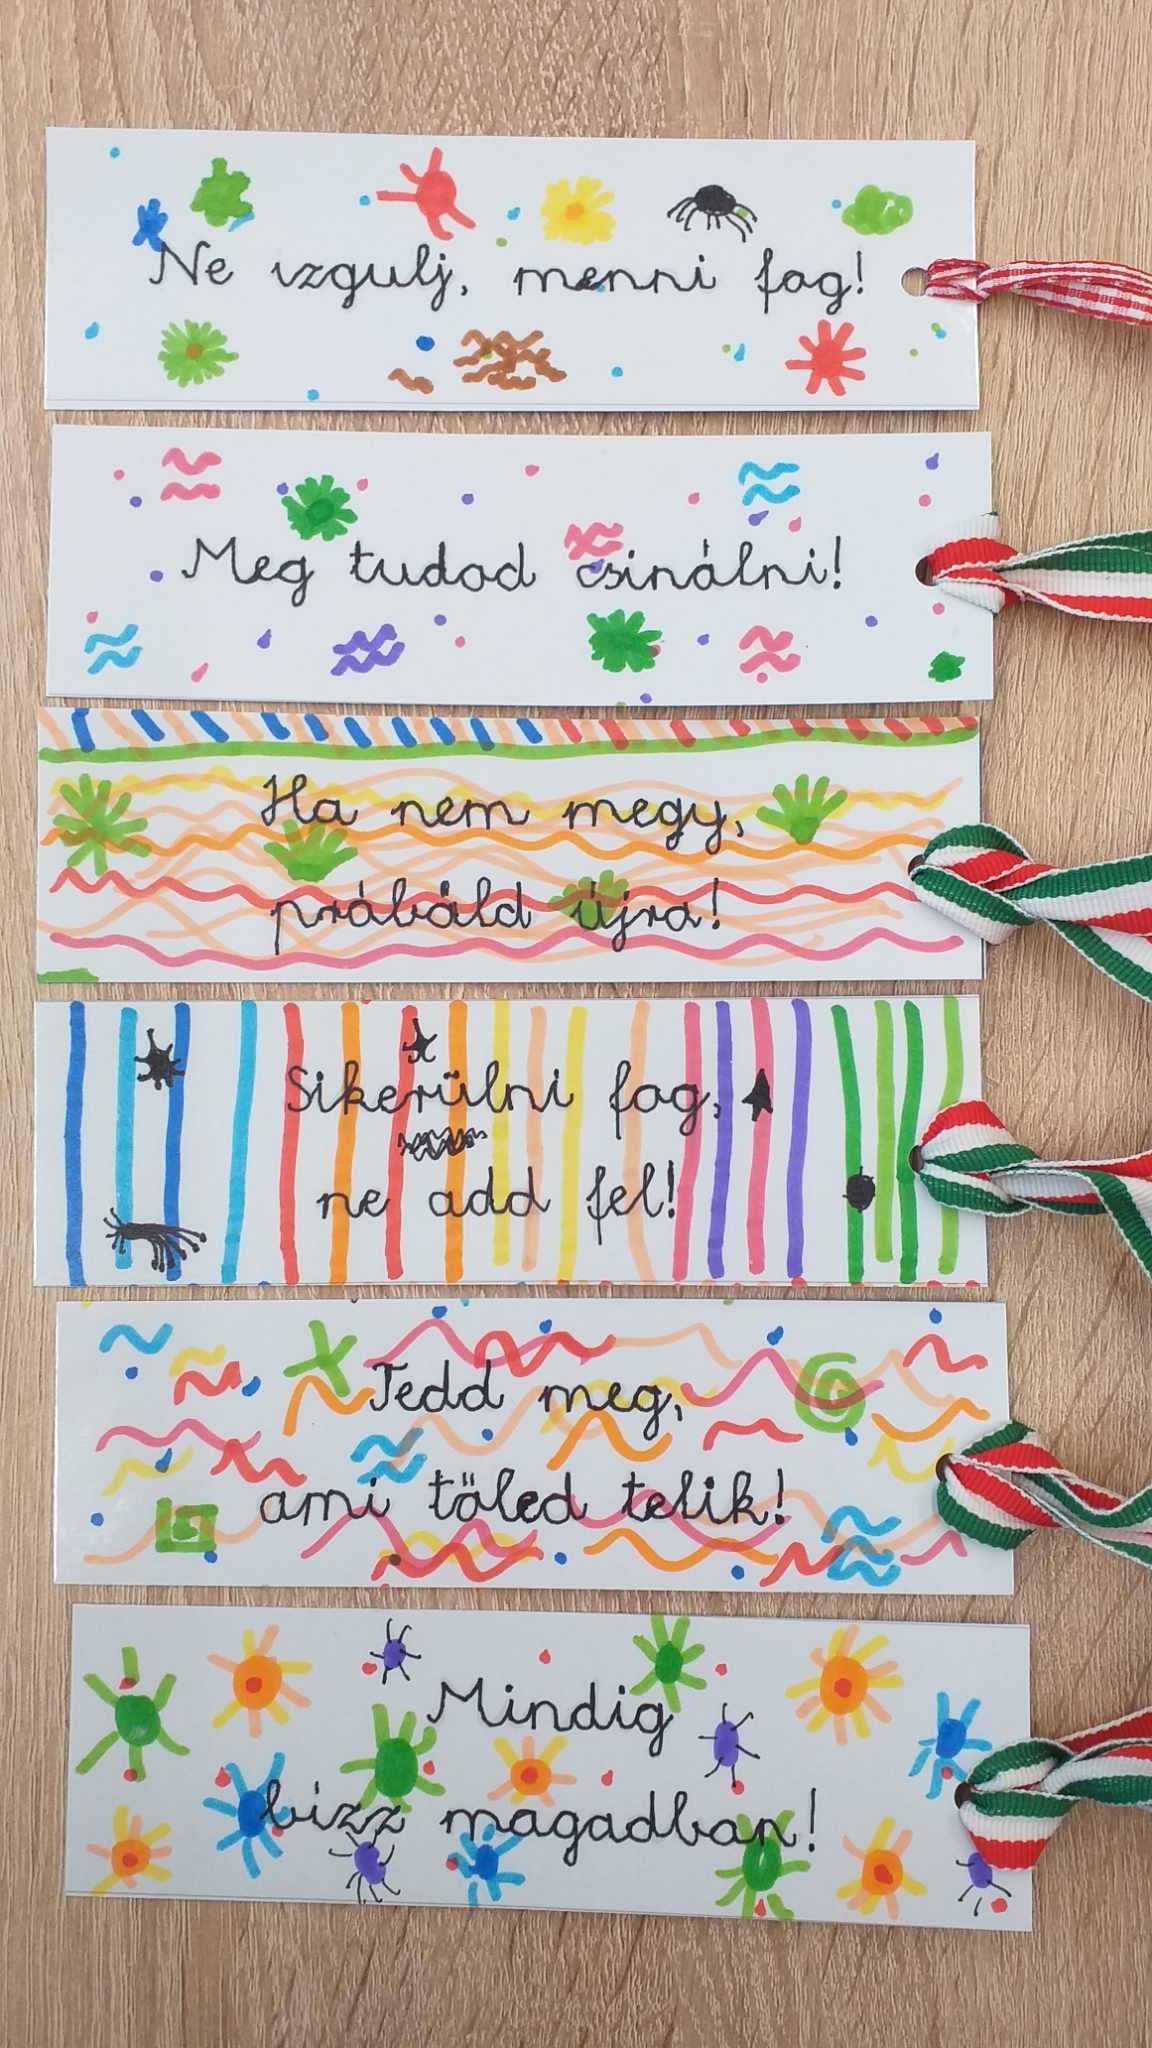 Ne izgulj, menni fog!
Meg tudod csinálni!
Ha nem megy,
próbáld újra!
Sikerülni fog,
ne add fel!
Tedd meg,
ami tőled telik!
Mindig
bízz magadban!